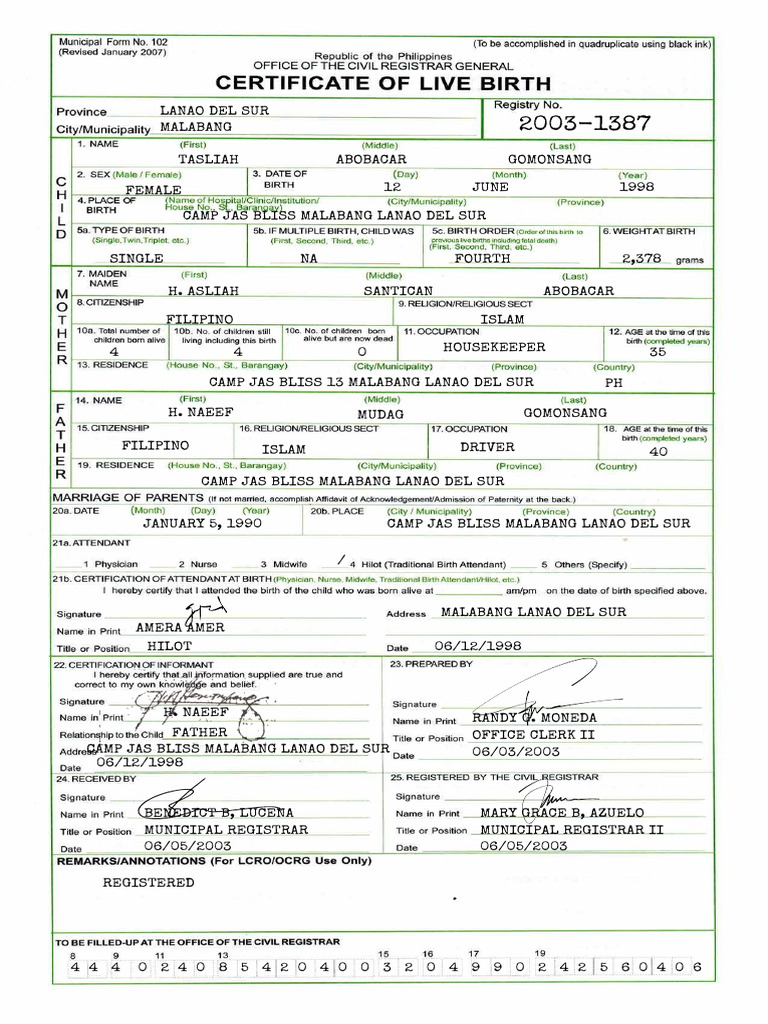 Municipal Form No. 102
(Revised January 2007)
(To be accomplished in quadruplicate using black ink)
Republic of the Philippines
OFFICE OF THE CIVIL REGISTRAR GENERAL
CERTIFICATE OF LIVE BIRTH
Province LANAO DEL SUR
City/Municipality MALABANG
Registry No.
2003-1387
CHILD
1. NAME (First) (Middle) (Last)
TASLIAH ABOBACAR GOMONSANG
2. SEX (Male / Female) 3. DATE OF BIRTH (Day) (Month) (Year)
FEMALE 12 JUNE 1998
4. PLACE OF BIRTH (Name of Hospital/Clinic/Institution/ House No., St., Barangay) (City/Municipality) (Province)
CAMP JAS BLISS MALABANG LANAO DEL SUR
5a. TYPE OF BIRTH (Single,Twin,Triplet, etc.) 5b. IF MULTIPLE BIRTH, CHILD WAS (First, Second, Third, etc.) 5c. BIRTH ORDER (Order of this birth to previous live births including fetal death) (First, Second, Third, etc.) 6. WEIGHT AT BIRTH
SINGLE NA FOURTH 2,378 grams
MOTHER
7. MAIDEN NAME (First) (Middle) (Last)
H. ASLIAH SANTICAN ABOBACAR
8. CITIZENSHIP 9. RELIGION/RELIGIOUS SECT
FILIPINO ISLAM
10a. Total number of children born alive 10b. No. of children still living including this birth 10c. No. of children born alive but are now dead 11. OCCUPATION 12. AGE at the time of this birth (completed years)
4 4 0 HOUSEKEEPER 35
13. RESIDENCE (House No., St., Barangay) (City/Municipality) (Province) (Country)
CAMP JAS BLISS 13 MALABANG LANAO DEL SUR PH
FATHER
14. NAME (First) (Middle) (Last)
H. NAEEF MUDAG GOMONSANG
15. CITIZENSHIP 16. RELIGION/RELIGIOUS SECT 17. OCCUPATION 18. AGE at the time of this birth (completed years)
FILIPINO ISLAM DRIVER 40
19. RESIDENCE (House No., St., Barangay) (City/Municipality) (Province) (Country)
CAMP JAS BLISS MALABANG LANAO DEL SUR
MARRIAGE OF PARENTS (If not married, accomplish Affidavit of Acknowledgement/Admission of Paternity at the back.)
20a. DATE (Month) (Day) (Year) 20b. PLACE (City / Municipality) (Province) (Country)
JANUARY 5, 1990 CAMP JAS BLISS MALABANG LANAO DEL SUR
21a. ATTENDANT
1 Physician 2 Nurse 3 Midwife / 4 Hilot (Traditional Birth Attendant) 5 Others (Specify)
21b. CERTIFICATION OF ATTENDANT AT BIRTH (Physician, Nurse, Midwife, Traditional Birth Attendant/Hilot, etc.)
I hereby certify that I attended the birth of the child who was born alive at am/pm on the date of birth specified above.
Signature Address MALABANG LANAO DEL SUR
Name in Print AMERA AMER
Title or Position HILOT Date 06/12/1998
22. CERTIFICATION OF INFORMANT
I hereby certify that all information supplied are true and
correct to my own knowledge and belief.
Signature
Name in Print H. NAEEF
Relationship to the Child FATHER
Address CAMP JAS BLISS MALABANG LANAO DEL SUR
Date 06/12/1998
23. PREPARED BY
Signature
Name in Print RANDY G. MONEDA
Title or Position OFFICE CLERK II
Date 06/03/2003
24. RECEIVED BY
Signature
Name in Print BENEDICT B, LUCENA
Title or Position MUNICIPAL REGISTRAR
Date 06/05/2003
25. REGISTERED BY THE CIVIL REGISTRAR
Signature
Name in Print MARY GRACE B, AZUELO
Title or Position MUNICIPAL REGISTRAR II
Date 06/05/2003
REMARKS/ANNOTATIONS (For LCRO/OCRG Use Only)
REGISTERED
TO BE FILLED-UP AT THE OFFICE OF THE CIVIL REGISTRAR
8 9 11 13 15 16 17 19
4 4 4 0 2 4 0 8 5 4 2 0 4 0 0 3 2 0 4 9 9 0 2 4 2 5 6 0 4 0 6